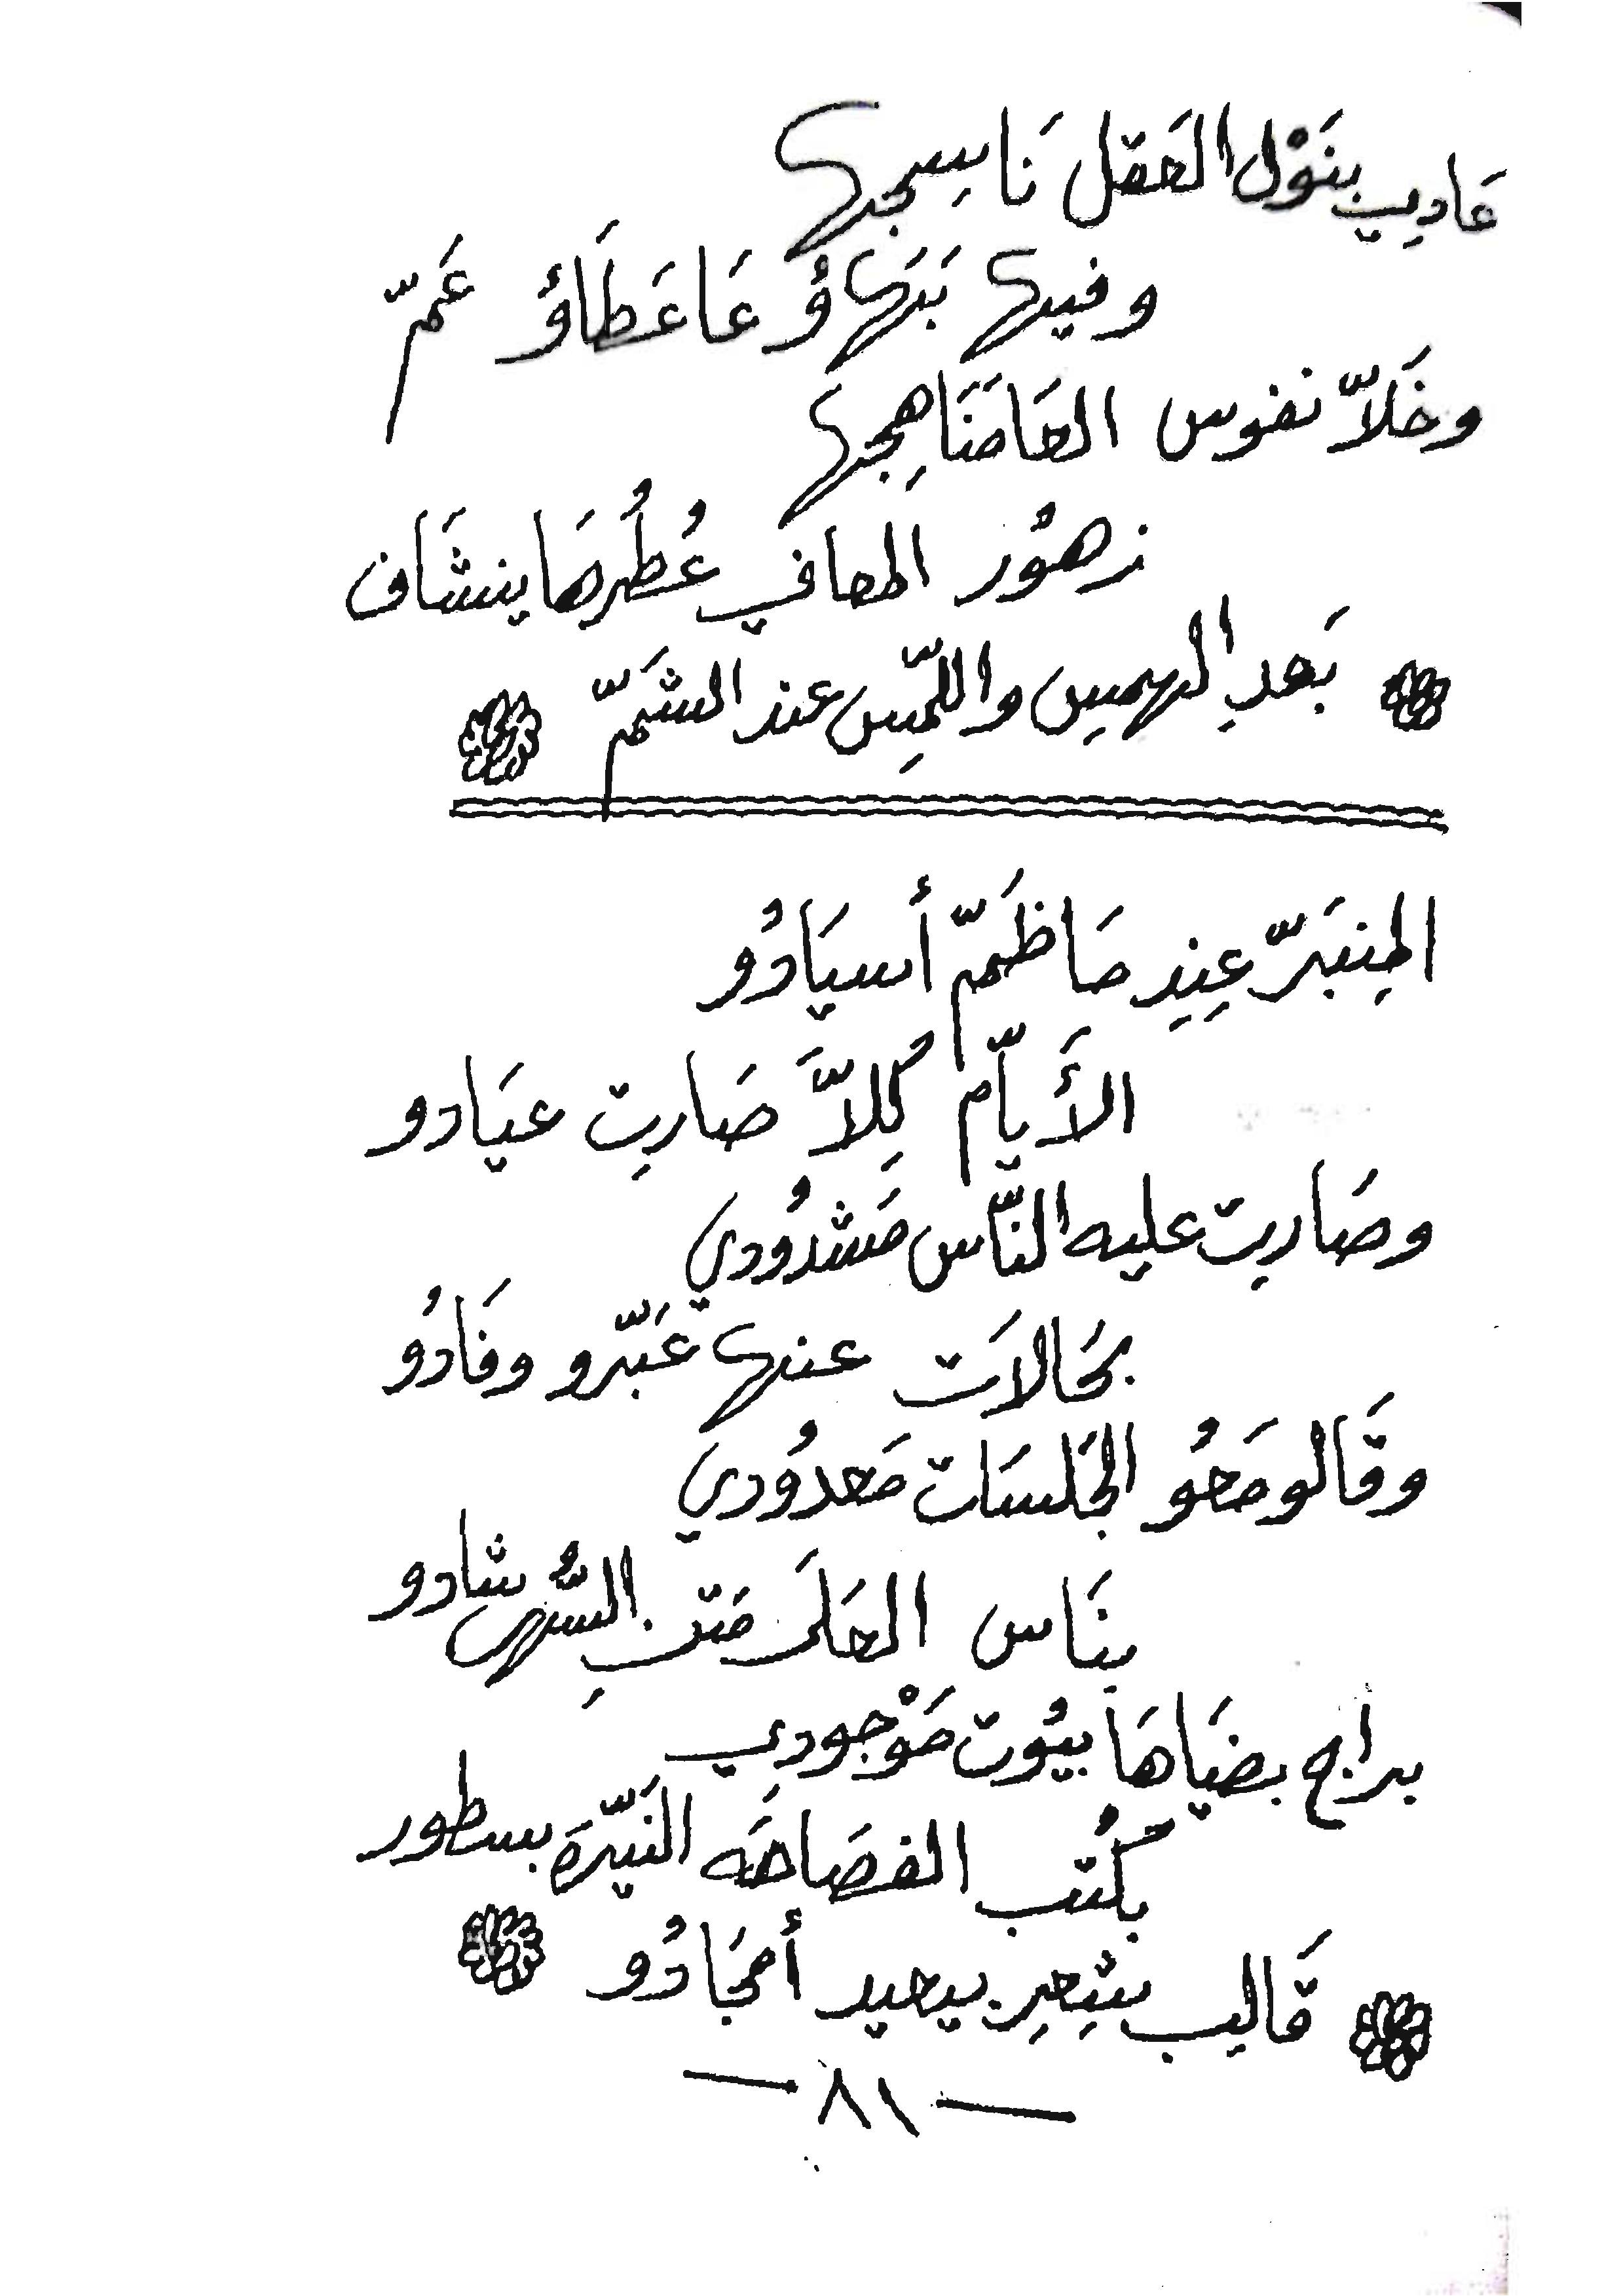 عَاديِب بنَوْل العَقل نَاسِجها
وفيها بَهَاؤُ عَا عَطَاؤُ عَمّ
وخَلاّ نفوس العَا مَنَاهِجها
زهُور المعاني عُطُرهَا ينشَاف
بَعدِ الهمِس واللّمِس عند الشَمّ
المِنبَرّ عِندِ مَا ظَمّ أسيَادُو
الأَيّام كُلِلاَّ صَارِت عيَادو
وصَارِت عليه النّاس مَشدُودي
بحَالاَت عنها عَبّرو وفَادُو
وقَالو مَعُو الجَلسَات مَعدُودي
بِنَاس العَلَى مَتنِ السُّهى شادو
براج بضيَاهَا بيُوت مَوْجودي
بكُتب الفصَاحَه النَيّرَة بسطور
قَاليب بشِعِر بيعيد أمجَادُو
— ٨١ —